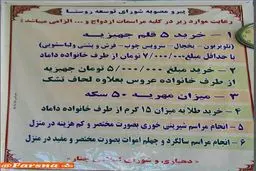 پیرو مصوبه شورای توسعه روستا
رعایت موارد زیر در کلیه مراسمات ازدواج و ... الزامی میباشد
۱ - خرید ۵ قلم جهیزیه
(تلویزیون - یخچال - سرویس چوب - فرش و پشتی ولباسشویی)
با حداقل مبلغ ۷/۰۰۰/۰۰۰ تومان از طرف خانواده داماد
۲ - خرید مبلغ ۵/۰۰۰/۰۰۰ تومان جهیزیه
از طرف خانواده عروس بعلاوه لحاف تشک
۳ - میزان مهریه ۵۰ سکه
۴ - خرید طلا به میزان ۱۵ گرم از طرف خانواده داماد
۵ - انجام مراسم شیرینی خوری بصورت مختصر و کم هزینه در منزل
۶ - انجام مراسم سالگرد و چهلم اموات بصورت مختصر و مفید در منزل
دهیاری و شورای اسلامی
@Parsna